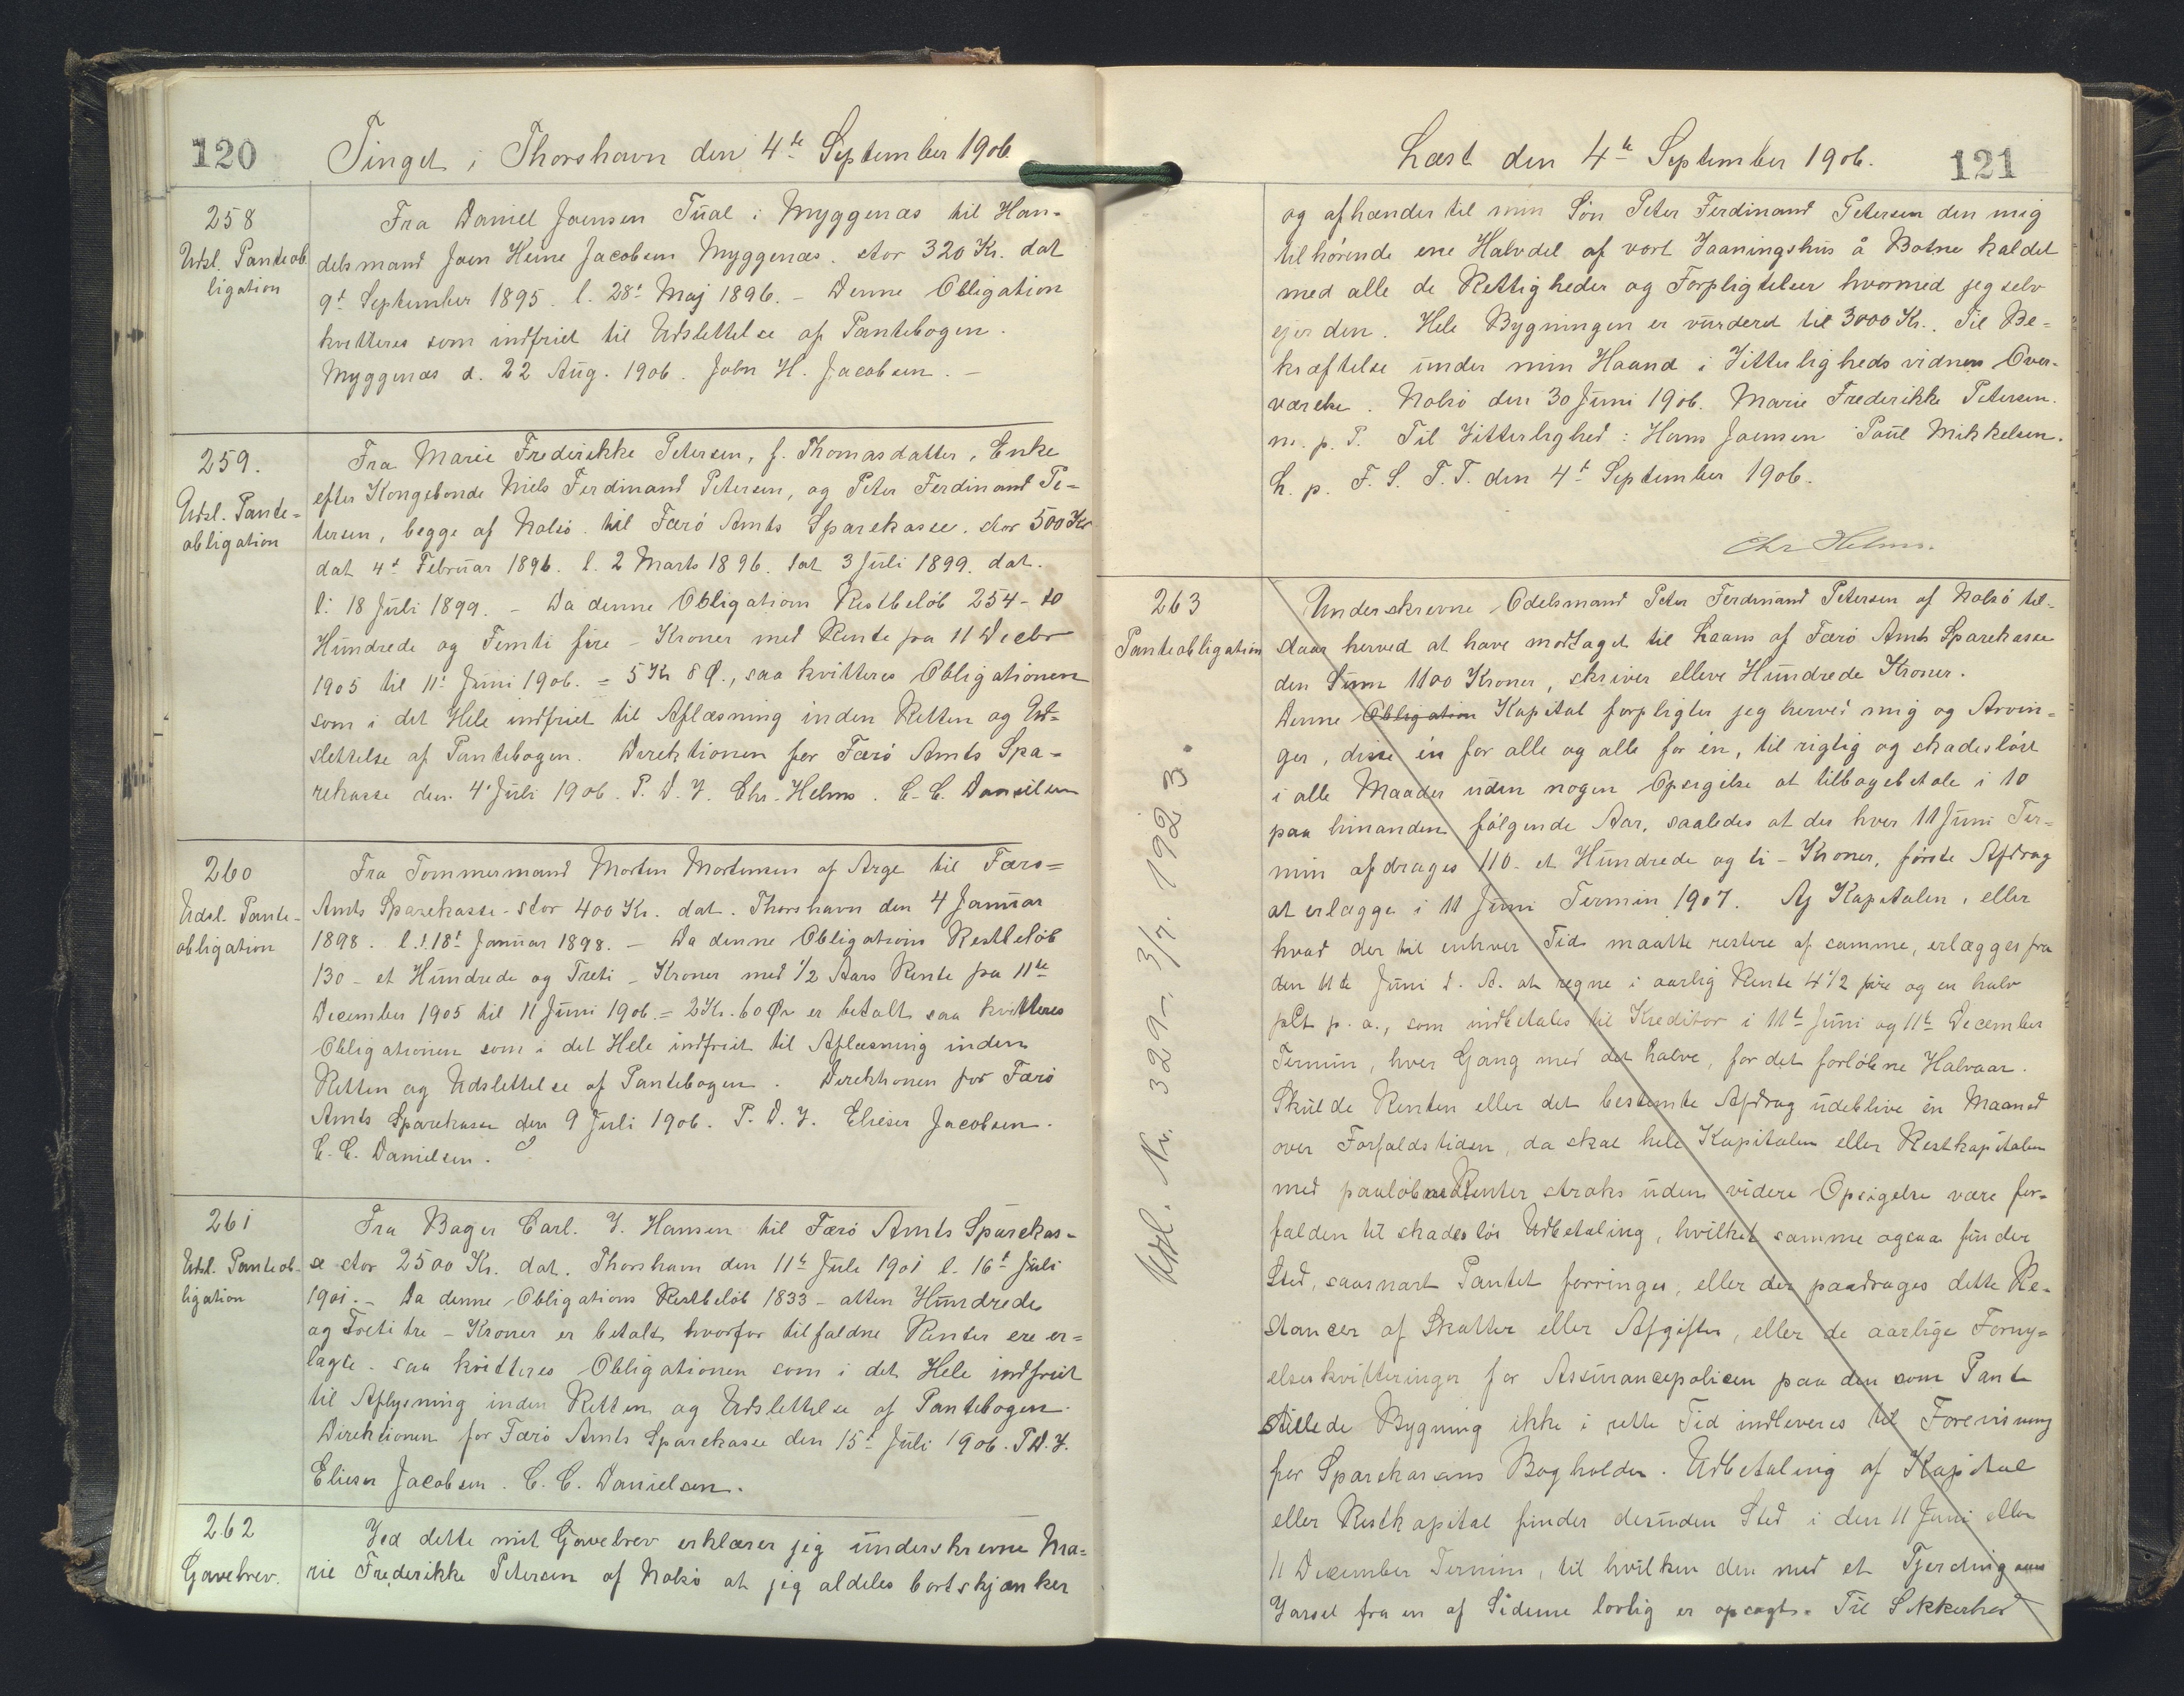 120
Tinget i Thorshavn den 4de September 1906
258
Udsl. Panteob
ligation
Fra Daniel Joensen Tual i Myggenæs til Han-
delsmand Joen Heine Jacobsen Myggenæs. stor 320 Kr. dat
9d September 1895. l. 28d Maj 1896. - Denne Obligation
kvitteres som indfriet til Udslettelse af Pantebogen.
Myggenæs d. 22 Aug. 1906. John H. Jacobsen. -
259.
Udsl. Pante-
obligation
Fra Marie Frederikke Petersen, f. Thomasdatter, Enke
efter Kongsbonde Niels Ferdinand Petersen, og Peter Ferdinand Pe-
tersen, begge af Nolsö til Færö Amts Sparekasse. stor 500 Kr
dat 4d Februar 1896. l. 2 Marts 1896. 3 Juli 1899. dat.
l. 18 Juli 1899. - Da denne Obligations Restbelöb 254 - to
Hundrede og Femti fire - Kroner med Rente fra 11 Decbr
1905 til 11d Juni 1906. = 5 Kr 8 Ø., saa kvitteres Obligationen
som i det Hele indfriet til Aflæsning inden Retten og Ud-
slettelse af Pantebogen. Direktionen for Færö Amts Spa-
rekasse den 4d Juli 1906. P. D. V. Chr. Helms. C. C. Danielsen
260
Udsl. Pante-
obligation
Fra Tommermand Morten Mortensen af Arge til Færö-
Amts Sparekasse - stor 400 Kr. dat. Thorshavn den 4 Januar
1898. l. 18d Januar 1898. - Da denne Obligations Restbelöb
130 - et Hundrede og Treti - Kroner med 1/2 Aars Rente fra 11te
December 1905 til 11 Juni 1906. = 2 Kr. 60 Øre er betalt saa kvitteres
Obligationen som i det Hele indfriet til Aflæsning inden
Retten og Udslettelse af Pantebogen. Direktionen for Færö
Amts Sparekasse den 9 Juli 1906. P. D. V. Elieser Jacobsen.
C. C. Danielsen.
261
Udsl. Panteob-
ligation
Fra Bager Carl. V. Hansen til Færö Amts Sparekas-
se stor 2500 Kr. dat. Thorshavn den 11te Juli 1901 l. 16d Juli
1901. - Da denne Obligations Restbelöb 1833 - atten Hundrede
og Treti tre - Kroner er betalt hvorfor tilfaldne Renter ere er-
lagte - saa kvitteres Obligationen som i det Hele indfriet
til Aflysning inden Retten og Udslettelse af Pantebogen.
Direktionen for Færö Amts Sparekasse den 15d Juli 1906. P. D. V.
Elieser Jacobsen. C. C. Danielsen.
262
Gavebrev.
Ved dette mit Gavebrev erklærer jeg underskrevne Ma-
rie Frederikke Petersen af Nolsö at jeg aldeles bortskjænker
Læst den 4de September 1906.
121
og afhænder til min Sön Peter Ferdinand Petersen den mig
tilhörende ene Halvdel af vort Vaaningshus å Botne kaldet
med alle de Rettigheder og Forpligtelser hvormed jeg selv
ejer den. Hele Bygningen er vurderet til 3000 Kr. Til Be-
kræftelse under min Haand i Vitterligheds vidners Over-
værelse. Nolsö den 30 Juni 1906. Marie Frederikke Petersen.
m. p. P. Til Vitterlighed: Hans Joensen Poul Mikkelsen.
L. p. F. S. T. T. den 4d September 1906.
Chr Helms.
263
Panteobligation
Udsl. Nr. 329 - 3/7. 1923.
Underskrevne Odelsmand Peter Ferdinand Petersen af Nolsö til-
staar herved at have modtaget til Laans af Færö Amts Sparekasse
den Sum 1100 Kroner, skriver elleve Hundrede Kroner.
Denne Obligation Kapital forpligter jeg herved mig og Arvin-
ger, disse én for alle og alle for én, til rigtig og skadeslöst
i alle Maader uden nogen Opsigelse at tilbagebetale i 10
paa hinanden fölgende Aar, saaledes at der hver 11 Juni Ter-
min afdrages 110 - et Hundrede og ti - Kroner, förste Afdrag
at erlægge i 11 Juni Termin 1907. Af Kapitalen, eller
hvad der til enhver Tid maatte restere af samme, erlægges fra
den 11te Juni d. A. at regne i aarlig Rente 4 1/2 fire og en halv
pCt p. a., som indbetales til Kreditor i 11te Juni og 11te December
Termin, hver Gang med det halve, for det forlöbne Halvaar.
Skulde Renten eller det bestemte Afdrag udeblive én Maaned
over Forfaldstiden, da skal hele Kapitalen eller Restkapitalen
med paalöbne Renter straks uden videre Opsigelse være for-
falden til skadeslös Udbetaling, hvilket samme ogsaa finder
Sted, saasnart Pantet forringes, eller der paadrages dette Re-
stancer af Skatter eller Afgifter, eller de aarlige Forny-
elseskvitteringer for Assurancepolicen paa den som Pant
stillede Bygning ikke i rette Tid indleveres til Forevisning
for Sparekassens Bogholder. Udbetaling af Kapital
eller Restkapital finder desuden Sted i den 11 Juni eller
11 December Termin, til hvilken den med et Fjerdingaars
Varsel fra en af Siderne lovlig er opsagt. Til Sikkerhed